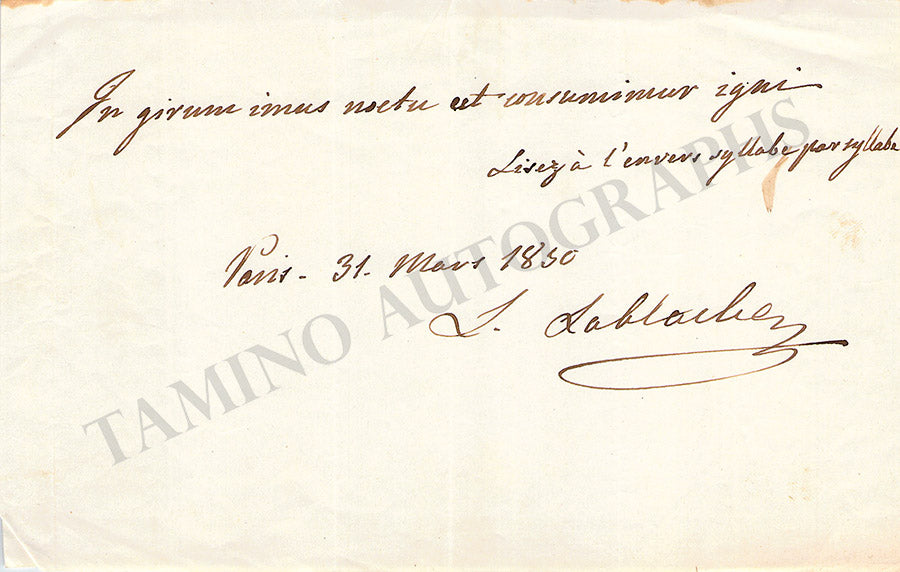 In girum imus noctu et consumimur igni
Lisez à l'envers syllabe par syllabe
Paris - 31. Mars 1850
L. Lablache
TAMINO AUTOGRAPHS